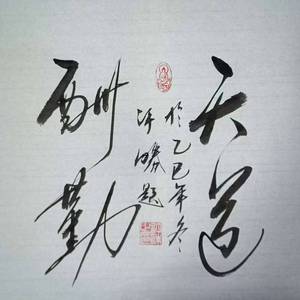 天道
酬勤
於乙巳年冬
许胜题